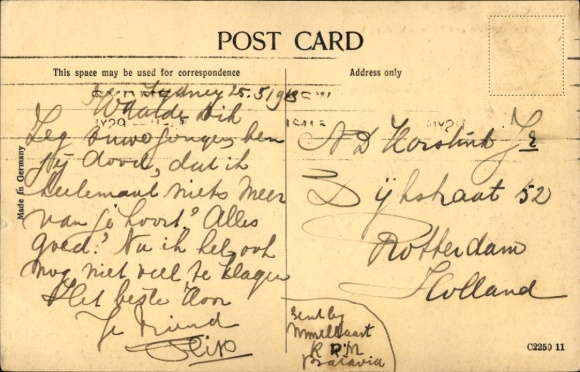 POST CARD
This space may be used for correspondence
Address only
Sydney 25.5.1913
Waarde Dik
Zeg ouwe jongen, ben
jij dood, dat ik
heelemaal niets meer
van je hoort? Alles
goed? Nu ik heb ook
nog niet veel te klagen
Het beste voor
Je Vriend
Made in Germany
A D Jr
Dijkstraat 52
Rotterdam
Holland
Sent by
K P M
Batavia
C2250 11